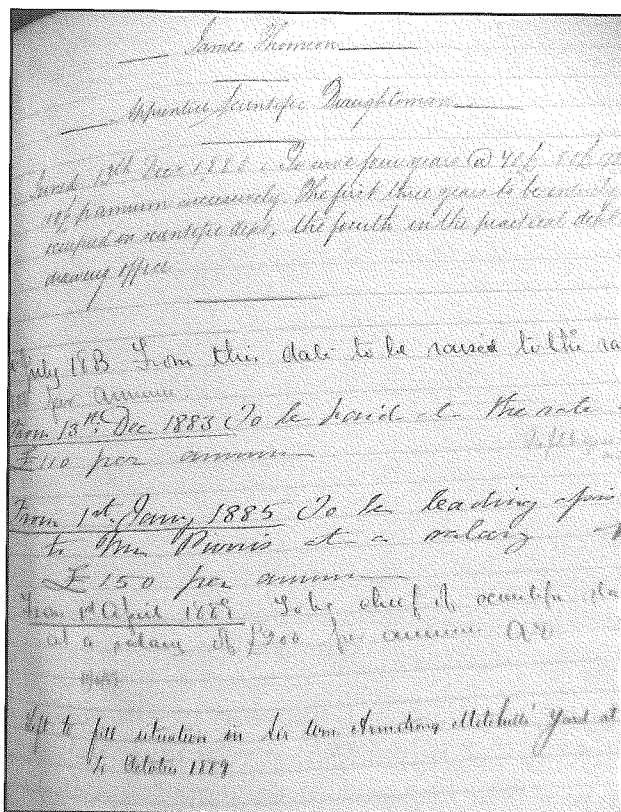 James Thomson
Apprentice Scientific Draughtsman
Joined 13th Dec 1880. To serve four years @ 40£ 50£
£ p annum successively. The first three years to be entirely
occupied in scientific dept, the fourth in the practical dept
drawing office
July 1883 From this date to be raised to the
per annum.
From 13th. Dec 1883 To be paid at the rate
£110 per annum
From 1st. Jany 1885 To be leading
to Mr Purvis at a salary
£150 per annum
From 1st April 1889 To be chief of scientific
at a salary of £200 per annum
Left to fill situation in Sir Wm Armstrong Mitchells' Yard at
October 1889